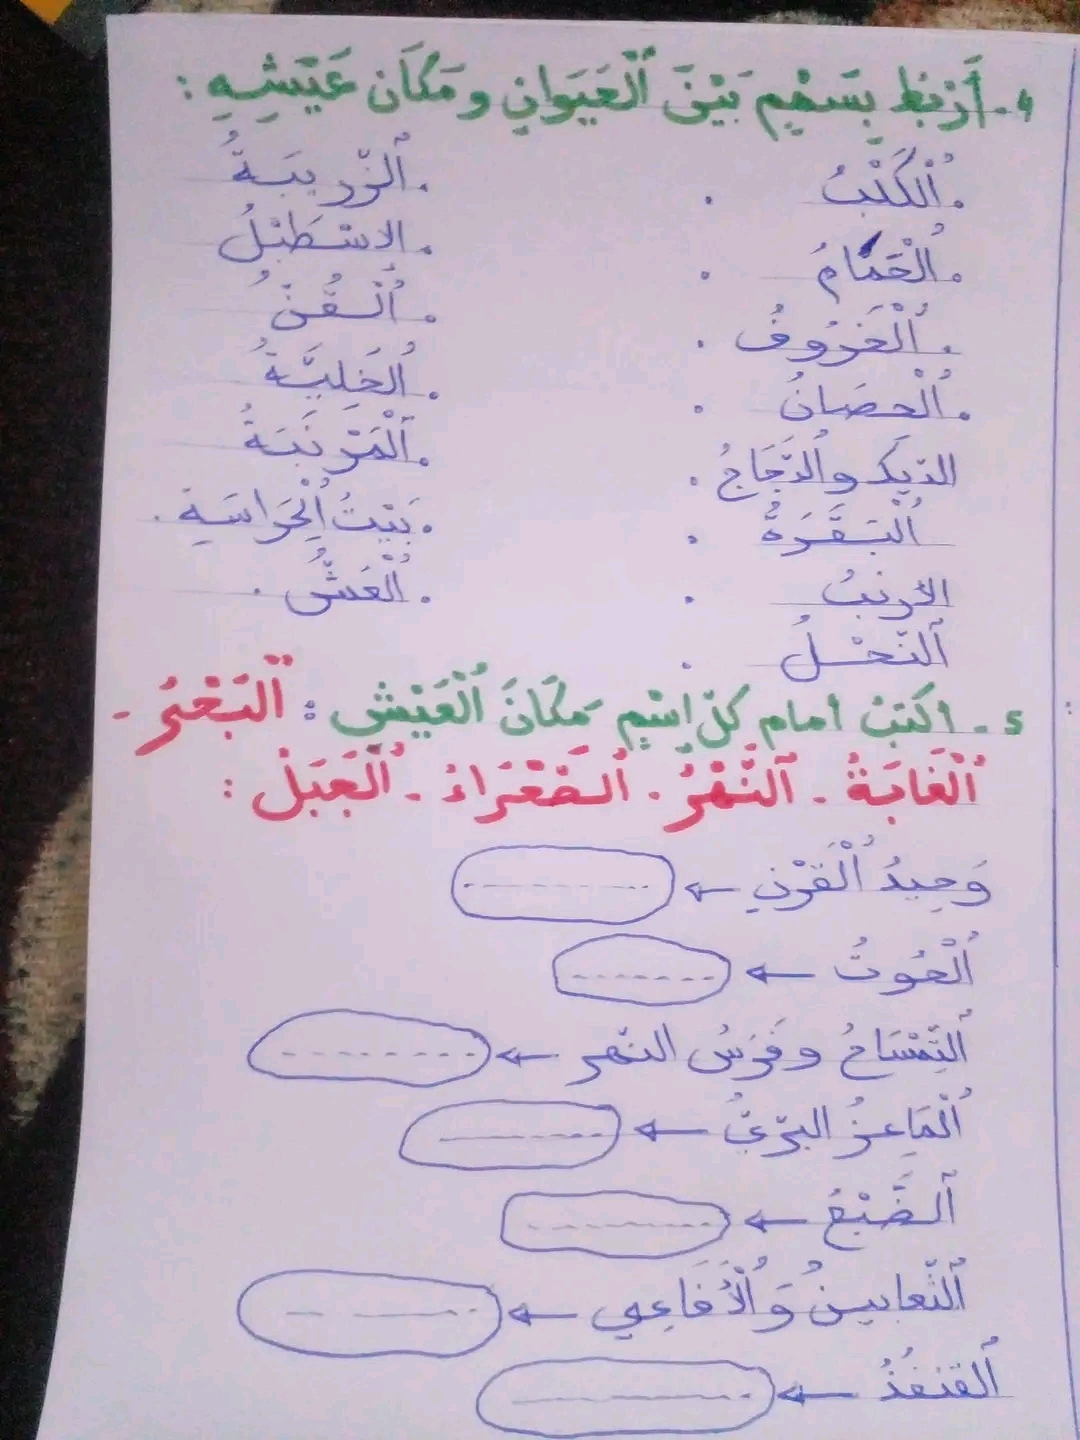 4. أَرْبِط بِسَهْمٍ بَيْنَ الْحَيَوَانِ وَمَكَانِ عَيْشِهِ :
. الْكَلْبُ . . الزَّرِيبَةُ
. الْحَمَامُ . . الاسْطَبْلُ
. الْخَرُوفُ . . الْقُنُّ
. الْحصَانُ . . الْخَلِيَّةُ
الدّيك والدَّجَاجُ . . الْمَرْنَبَةُ
الْبَقَرَةُ . . بَيْتُ الْحِرَاسَةِ .
الأرنبُ . . الْعُشُّ .
النّحْلُ .
5 - اكتبْ أمام كلّ اسْمٍ مَكَانَ الْعَيْشِ : الْبَحْرُ -
الْغَابَةُ - النَّهْرُ - الصَّحْرَاءُ - الْجَبَلُ :
وَحِيدُ الْقَرْنِ ←
الْحُوتُ ←
التِّمْسَاحُ وفَرَسُ النهر ←
الْمَاعِزُ البرّيُّ ←
الضَّبْعُ ←
الثّعابينُ وَالْأَفَاعِي ←
القنفذُ ←